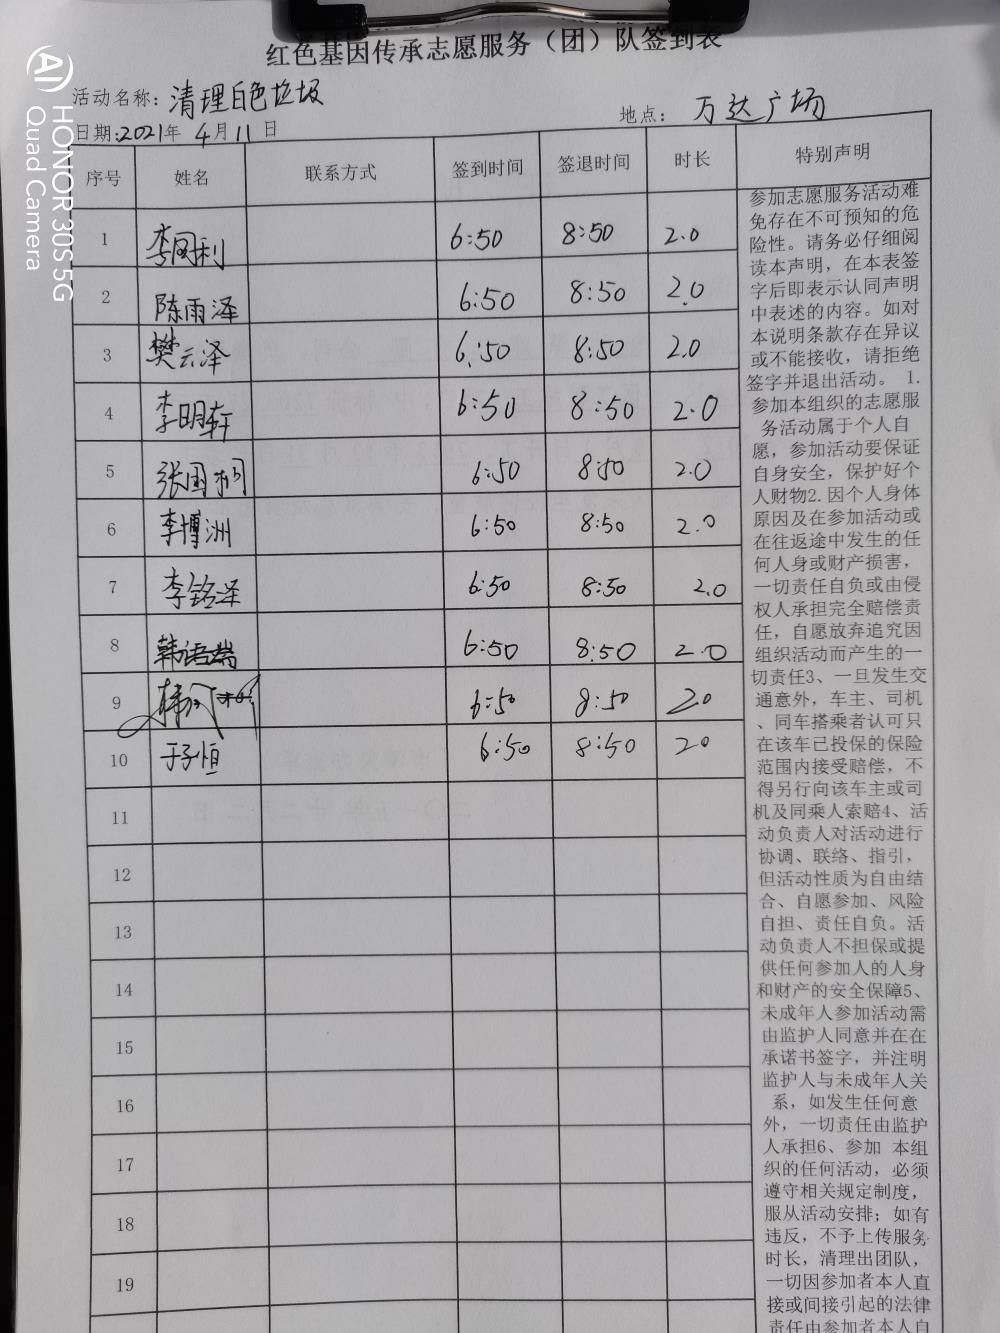 红色基因传承志愿服务（团）队签到表
活动名称：清理白色垃圾
地点：万达广场
日期:2021年4月11日
序号 姓名 联系方式 签到时间 签退时间 时长 特别声明
1 李国利 6:50 8:50 2.0
2 陈雨泽 6:50 8:50 2.0
3 樊云泽 6:50 8:50 2.0
4 李明轩 6:50 8:50 2.0
5 张国桐 6:50 8:50 2.0
6 李博洲 6:50 8:50 2.0
7 李铭泽 6:50 8:50 2.0
8 韩语端 6:50 8:50 2.0
9 6:50 8:50 20
10 于子恒 6:50 8:50 20
11
12
13
14
15
16
17
18
19
参加志愿服务活动难
免存在不可预知的危
险性。请务必仔细阅
读本声明，在本表签
字后即表示认同声明
中表述的内容。如对
本说明条款存在异议
或不能接收，请拒绝
签字并退出活动。 1.
参加本组织的志愿服
务活动属于个人自
愿，参加活动要保证
自身安全，保护好个
人财物2.因个人身体
原因及在参加活动或
在往返途中发生的任
何人身或财产损害，
一切责任自负或由侵
权人承担完全赔偿责
任，自愿放弃追究因
组织活动而产生的一
切责任3、一旦发生交
通意外，车主、司机
、同车搭乘者认可只
在该车已投保的保险
范围内接受赔偿，不
得另行向该车主或司
机及同乘人索赔4、活
动负责人对活动进行
协调、联络、指引，
但活动性质为自由结
合、自愿参加、风险
自担、责任自负。活
动负责人不担保或提
供任何参加人的人身
和财产的安全保障5、
未成年人参加活动需
由监护人同意并在在
承诺书签字，并注明
监护人与未成年人关
系，如发生任何意
外，一切责任由监护
人承担6、参加 本组
织的任何活动，必须
遵守相关规定制度，
服从活动安排；如有
违反，不予上传服务
时长，清理出团队，
一切因参加者本人直
接或间接引起的法律
责任由参加者本人自
AI HONOR 30S 5G
Quad Camera